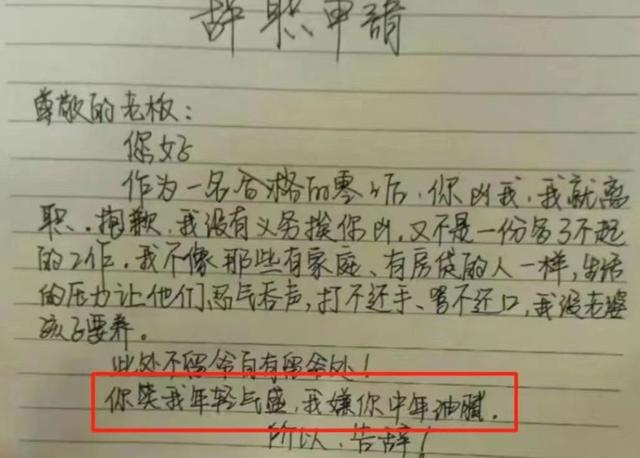 辞职申请
尊敬的老板：
你好
作为一名合格的零零后，你凶我，我就离
职。抱歉，我没有义务挨你凶，又不是一份多了不起
的工作，我不像那些有家庭、有房贷的人一样，生活
的压力让他们忍气吞声，打不还手、骂不还口，我没老婆
孩子要养。
此处不留爷自有留爷处！
你笑我年轻气盛，我嫌你中年油腻。
所以，告辞！